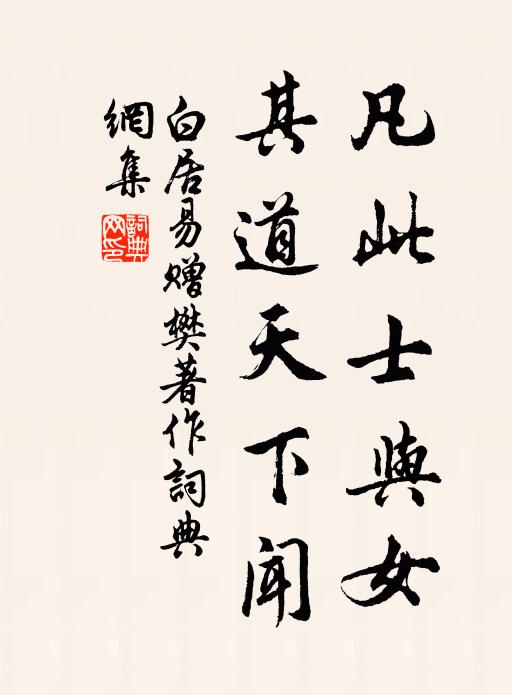 凡此士與女
其道天下聞
白居易赠樊著作詞典
網集
詞典
网印